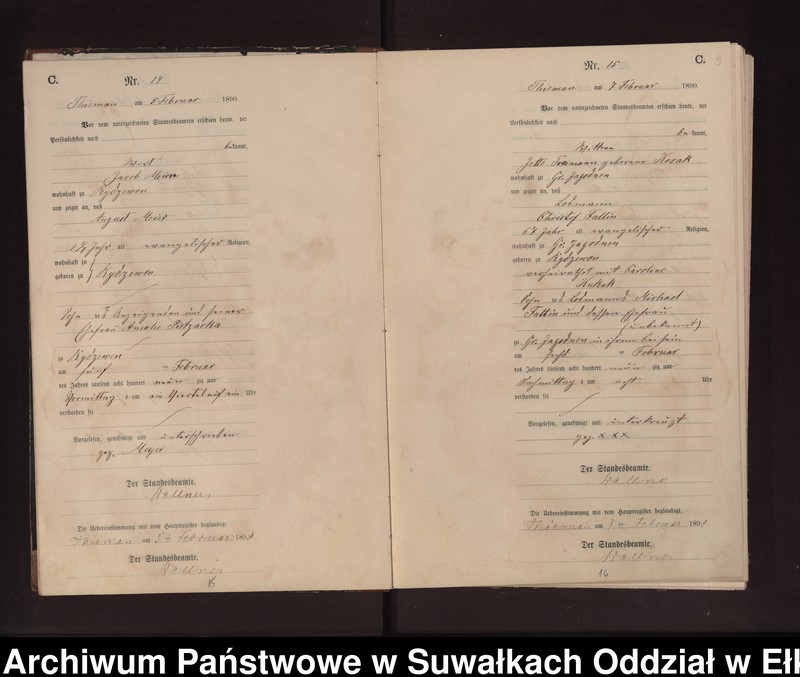 C.
Nr. 14
Thiemau am 5 Februar 1890.
Vor dem unterzeichneten Standesbeamten erschien heute, der
Persönlichkeit nach
bekannt,
Wirt
Jacob Meier
wohnhaft zu Rydzewen
und zeigte an, daß
August Meier
alt evangelischer Religion,
wohnhaft zu
geboren zu } Rydzewen
Sohn des Anzeigenden und seiner
Ehefrau Amalie
zu Rydzewen
am fünf ten Februar
des Jahres tausend acht hundert neun zig und
Vormittag s um ein Viertel auf ein Uhr
verstorben sei
Vorgelesen, genehmigt und unterschrieben
gez. Meyer
Der Standesbeamte.
Wallner
Die Uebereinstimmung mit dem Hauptregister beglaubigt.
Thiemau am 5 ten Februar 1890
Der Standesbeamte.
Wallner
15
C. 3
Nr. 15
Thiemau am 7 Februar 1890.
Vor dem unterzeichneten Standesbeamten erschien heute, der
Persönlichkeit nach
bekannt,
Wittwe
geborene Kosak
wohnhaft zu Gr. Jagodnen
und zeigte an, daß
Losmann
Christof
67 Jahr alt evangelischer Religion,
wohnhaft zu Gr. Jagodnen
geboren zu Rydzewen
verheirathet mit Caroline
Kukuk
Sohn des Losmanns Michael
und dessen Ehefrau
(unbekannt)
zu Gr. Jagodnen in ihrem Beisein
am sechs ten Februar
des Jahres tausend acht hundert neun zig und
Nachmittag s um acht Uhr
verstorben sei
Vorgelesen, genehmigt und unterkreuzt
gez. x x x
Der Standesbeamte.
Wallner
Die Uebereinstimmung mit dem Hauptregister beglaubigt.
Thiemau am 7 ten Februar 1890
Der Standesbeamte.
Wallner
16
Archiwum Państwowe w Suwałkach Oddział w Ełk